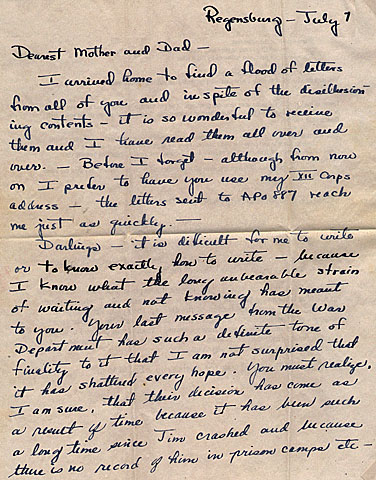 Regensburg - July 7
Dearest Mother and Dad -
I arrived home to find a flood of letters
from all of you and in spite of the disillusion-
ing contents - it is so wonderful to receive
them and I have read them all over and
over. - Before I forget - although from now
on I prefer to have you use my XII Corps
address - the letters sent to APO 887 reach
me just as quickly. -
Darlings - it is difficult for me to write
or to know exactly how to write - because
I know what the long unbearable strain
of waiting and not knowing has meant
to you. Your last message from the War
Department has such a definite tone of
finality to it that I am not surprised that
it has shattered every hope. You must realize,
I am sure, that their decision has come as
a result of time because it has been such
a long time since Jim crashed and because
there is no record of him in prison camps etc -